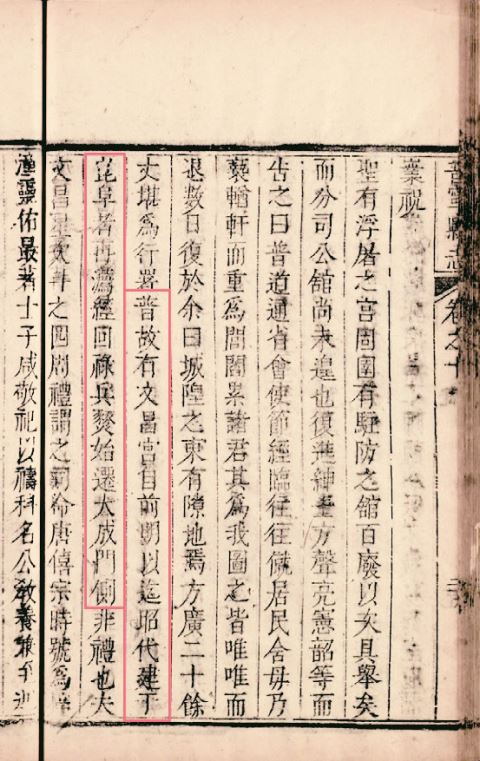 普寧縣志 卷之十
業視
聖有浮屠之宮周圍有駐防之舘百廢以次具舉矣
而分司公舘尚未遑也復進紳方聲亮憲韶等而
告之曰普道通省會使節經臨往往僦居民舍毋乃
褻輶軒而重為閭閻累諸君其為我圖之皆唯唯而
退數日復於余曰城隍之東有隙地焉方廣二十餘
丈堪為行署普故有文昌宮自前期以迄昭代建于
崑阜者再薦經回祿兵燹始遷大成門側非禮也夫
文昌星次井之四周禮謂之司命唐僖宗時號為
濟靈佑最著士子咸敬祀以禱科名公敎養兼至迺